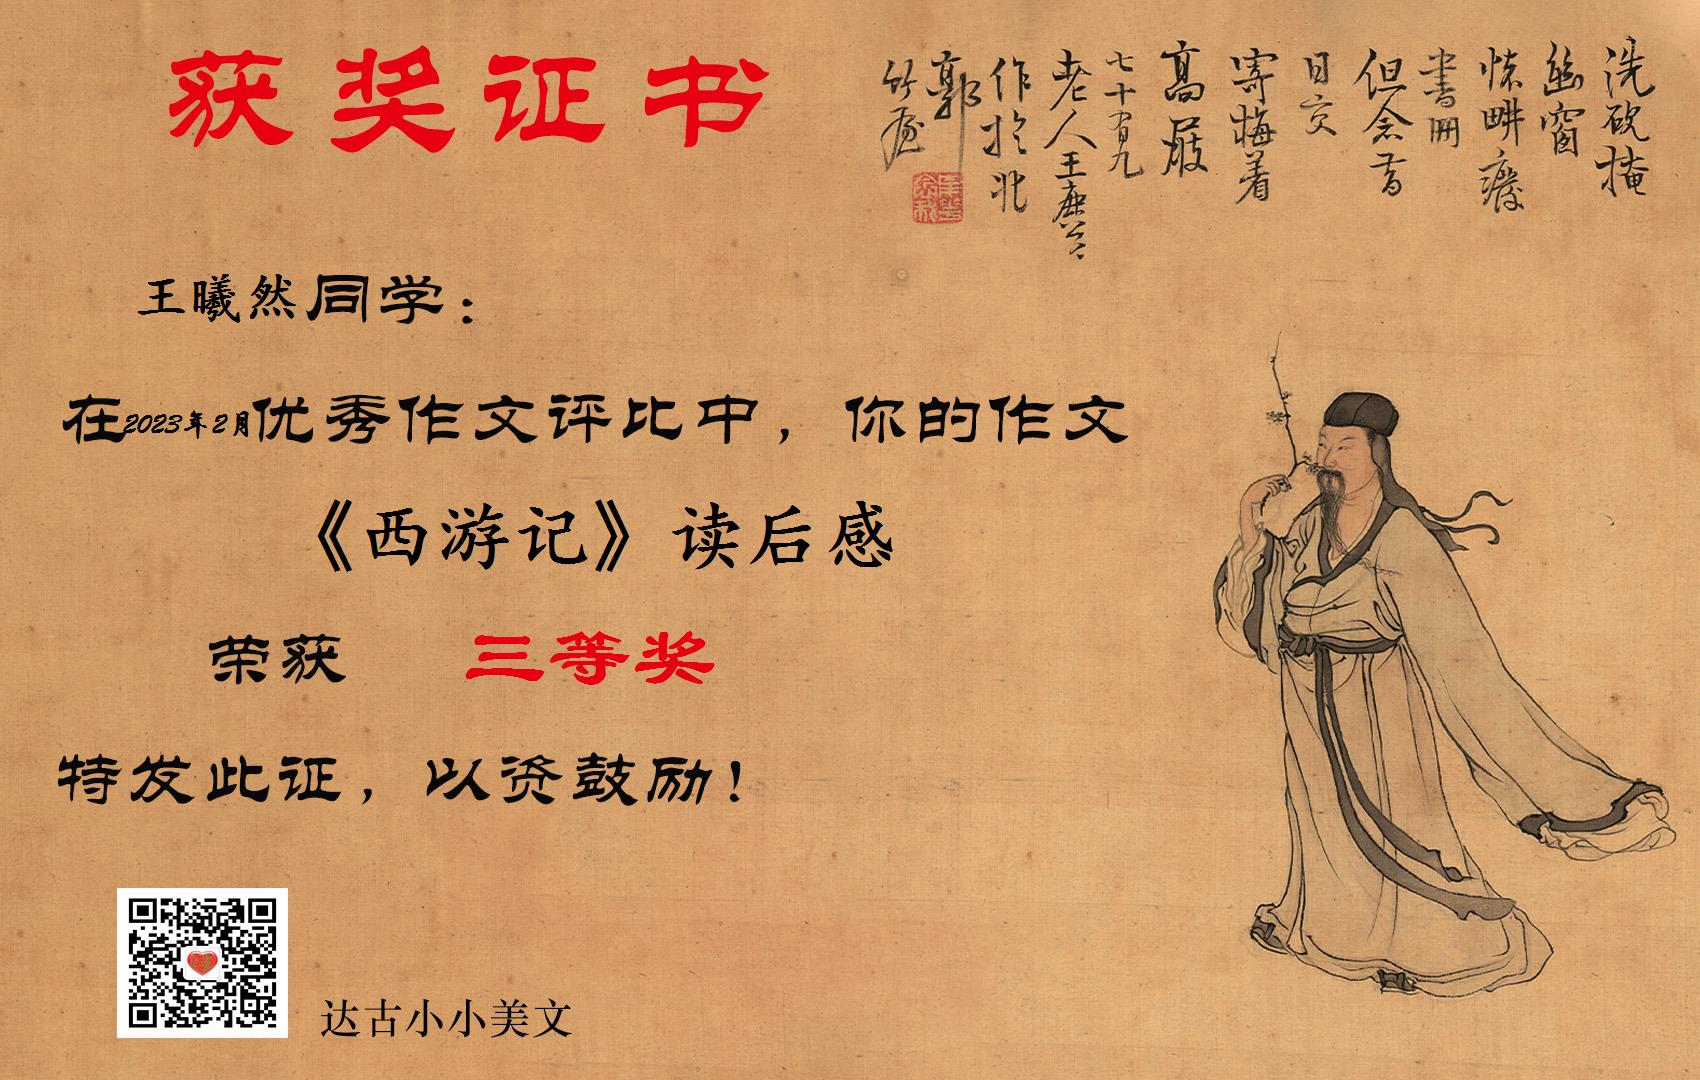 获奖证书
洗砚掩
幽窗
怀
书册
但念昔
日交
寄梅着
高
七十有九
老人王
作于北
郭
竹
王曦然同学：
在2023年2月优秀作文评比中，你的作文
《西游记》读后感
荣获 三等奖
特发此证，以资鼓励！
达古小小美文